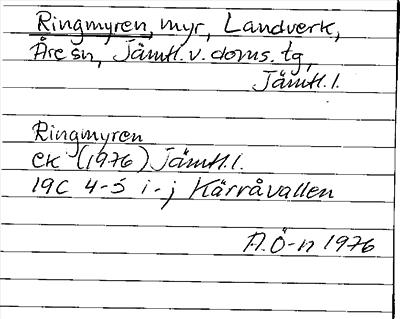 Ringmyren, myr, Landverk,
Åre sn, Jämtl. v. doms. tg,
Jämtl. l.
Ringmyren
ek (1976) Jämtl. l.
19C 4-5 i-j Kärråvallen
A.Ö-n 1976